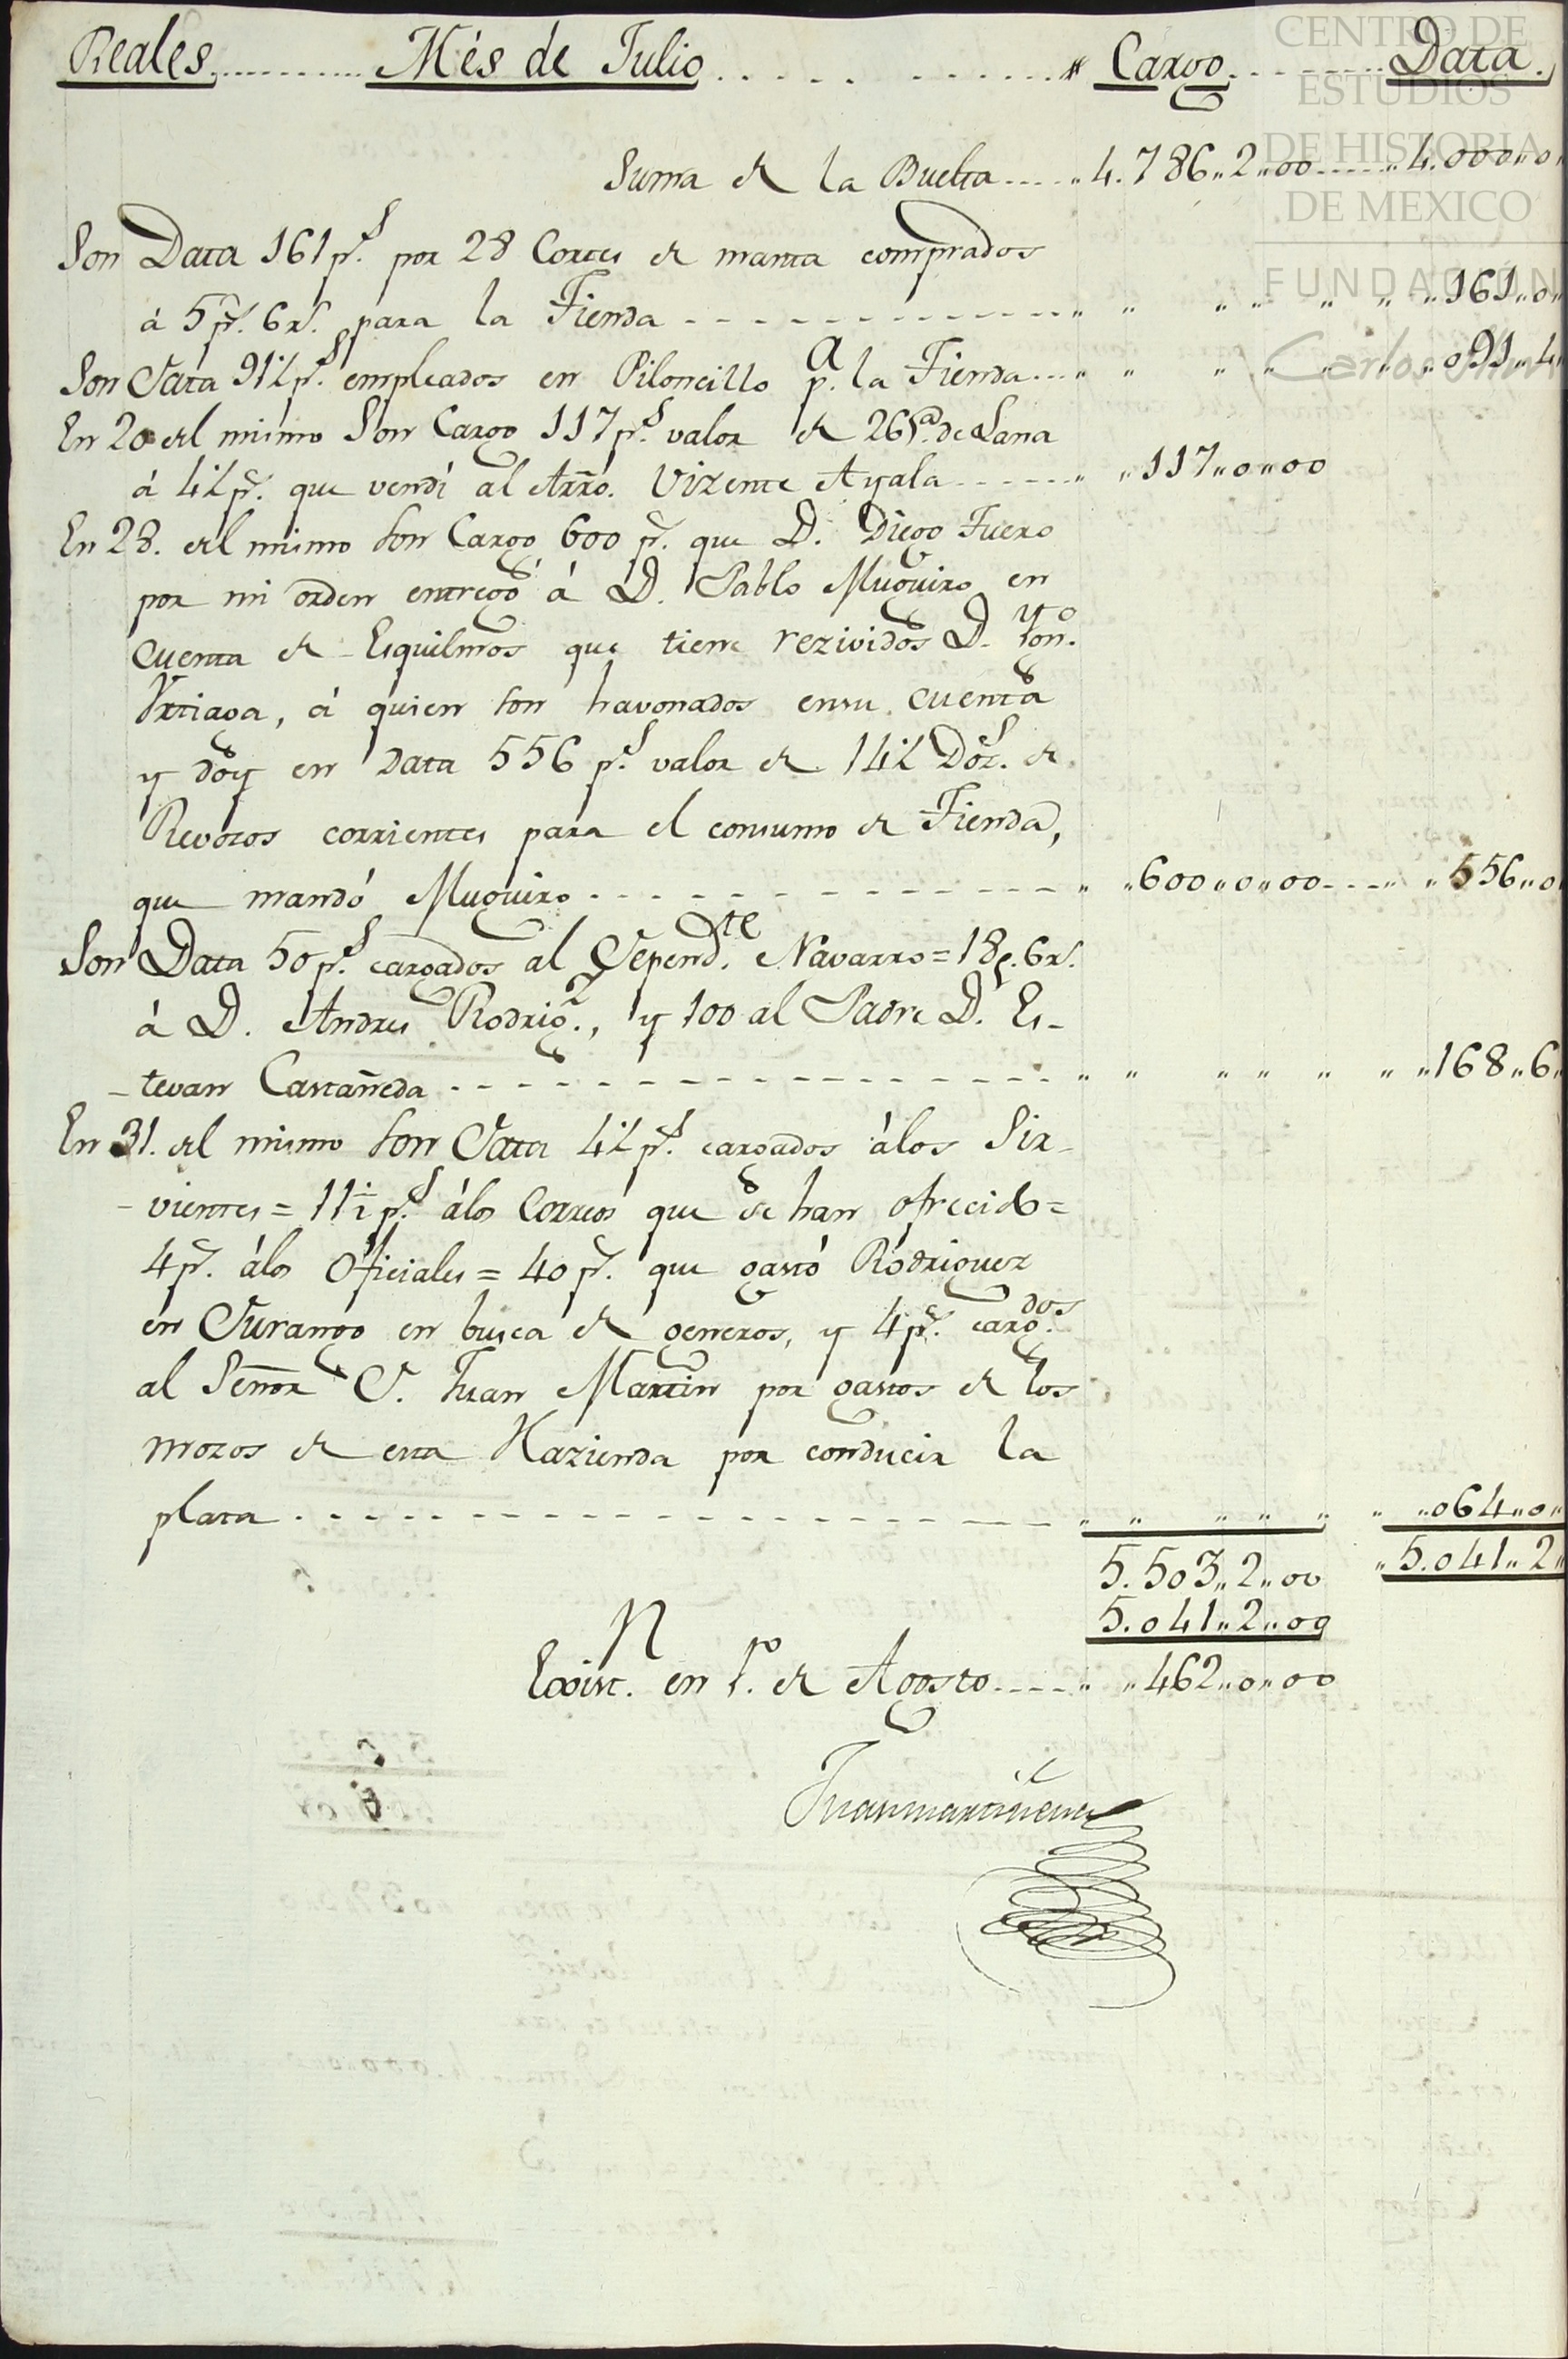 Reales. Més de Julio Cargo Data.
CENTRO DE
ESTUDIOS
DE HISTORIA
DE MEXICO
FUNDACIÓN
Carlos Slim
Suma de la Buelta 4.786,,2,,00 4.000,,0,,
Son Data 161 p.s por 28 Cortes de manta comprados
á 5 p.s 6 r.s para la Tienda 161,,0,,
Son Data 91½ p.s empleados en Piloncillo p.a la Tienda 091,,4,,
En 20 del mismo Son Cargo 117 p.s valor de 26 @ de Lana
á 4½ p.s que vendí al Arrō. Vizente Ayala 117,,0,,00
En 28. del mismo son Cargo 600 p.s que D. Diego Fuero
por mi orden entregó á D. Pablo Muguiro en
cuenta de Esquilmos que tiene rezividos D. Yon.yo
Vrtiaga, á quien son havonados ensu cuenta
y doy en Data 556 p.s valor de 14½ Doz.s de
Revozos corrientes para el consumo de Tienda,
que mandó Muguiro 600,,0,,00 556,,0
Son Data 50 p.s cargados al Depend.te Navarro = 18 p. 6 r.s
á D. Andres Rodrig.z, y 100 al Padre D. Es-
-tevan Castañeda 168,,6,,
En 31. del mismo son Data 4½ p.s cargados álos Sir-
-vientes = 11½ p.s álos Correos que se han ofrecido =
4 p.s álos Oficiales = 40 p.s que gastó Rodriguez
en Durango en busca de generos, y 4 p.s carg.dos
al Señor D. Juan Martin por gastos de los
mozos de esta Hazienda por conducir la
plata 064,,0,,
5.503,,2,,00 5.041,,2,,
5.041,,2,,00
Exist.n en 1.o de Agosto 462,,0,,00
Juanmartinena